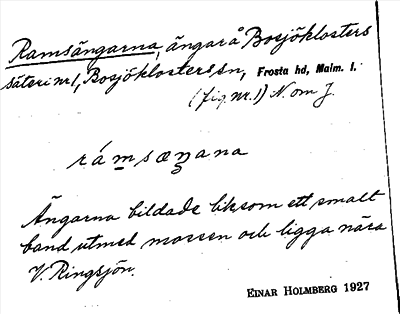 Ramsängarna, ängar å Bosjöklosters
säteri nr 1, Bosjöklosters sn, Frosta hd, Malm. l.
(fig. nr. 1) N om J.
rámsæŋana
Ängarna bildade liksom ett smalt
band utmed mossen och ligga nära
V. Ringsjön.
EINAR HOLMBERG 1927